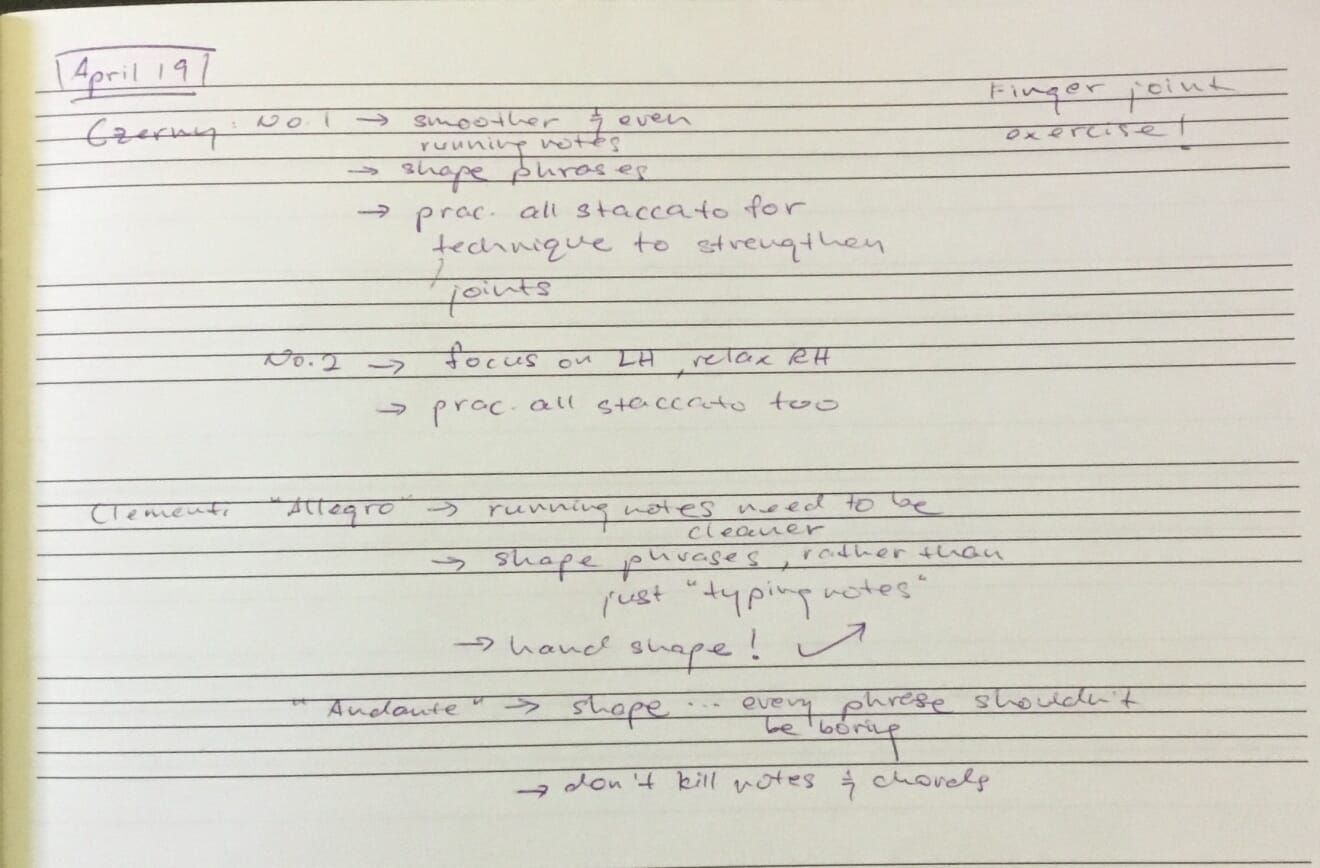 April 19
Finger joint
exercise!
Czerny: No. 1 → smoother & even
running notes
→ shape phrases
→ prac. all staccato for
technique to strengthen
joints
No. 2 → focus on LH, relax RH
→ prac. all staccato too
Clementi "Allegro" → running notes need to be
cleaner
→ shape phrases, rather than
just "typing notes"
→ hand shape!
"Andante" → shape ... every phrase shouldn't
be boring
→ don't kill notes & chords